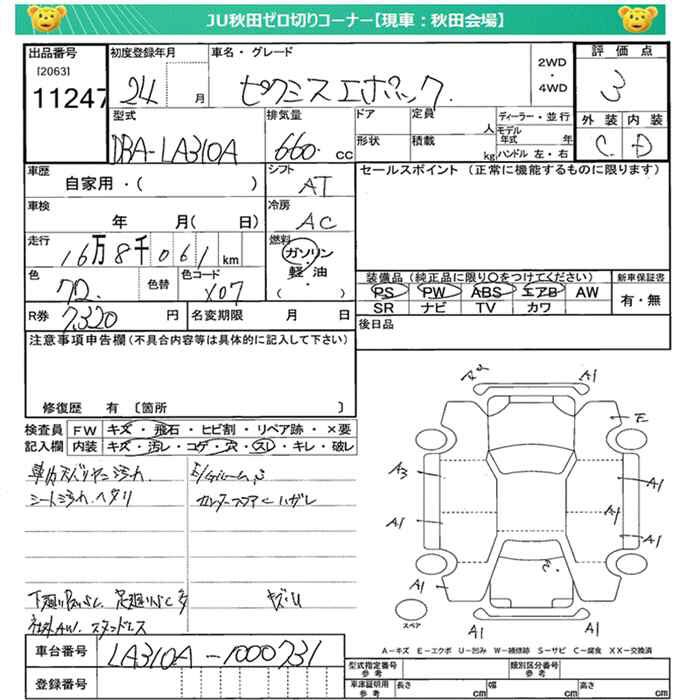 JU秋田ゼロ切りコーナー【現車：秋田会場】
出品番号
[2063]
11247
初度登録年月
24 月
車名・グレード
ピクシスエポック
2WD
・
4WD
評価点
3
外装 内装
C D
型式
DBA-LA310A
排気量
660. cc
ドア
定員
人
形状
積載
kg
ディーラー・並行
モデル年式 年
ハンドル 左・右
車歴
自家用・( )
シフト
AT
セールスポイント (正常に機能するものに限ります)
車検
年 月( 日)
冷房
AC
走行
16万8千061km
燃料
ガソリン
・
軽油
( )
色
色替
色コード
X07
装備品(純正品に限り○をつけてください)
PS PW ABS エアB AW
SR ナビ TV カワ
新車保証書
有・無
R券
7,320 円
名変期限 月 日
後日品
注意事項申告欄(不具合内容等は具体的に記入して下さい)
修復歴 有 〔箇所 〕
検査員記入欄
FW キズ・飛石・ヒビ割・リペア跡・×要
内装 キズ・汚レ・コゲ・穴・スレ・キレ・破レ
シート汚れ.ヘタリ
ハガレ
キズ・U
社外AW. スタッドレス
A1
E
A3
A1
A1
A1
A1
A1
A1
A1
スペア
A-キズ E-エクボ U-凹み W-補修跡 S-サビ C-腐食 XX-交換済
車台番号
LA310A-1000731
登録番号
型式指定番号
参考
類別区分番号
参考
車庫証明用
参考
長さ cm
幅 cm
高さ cm